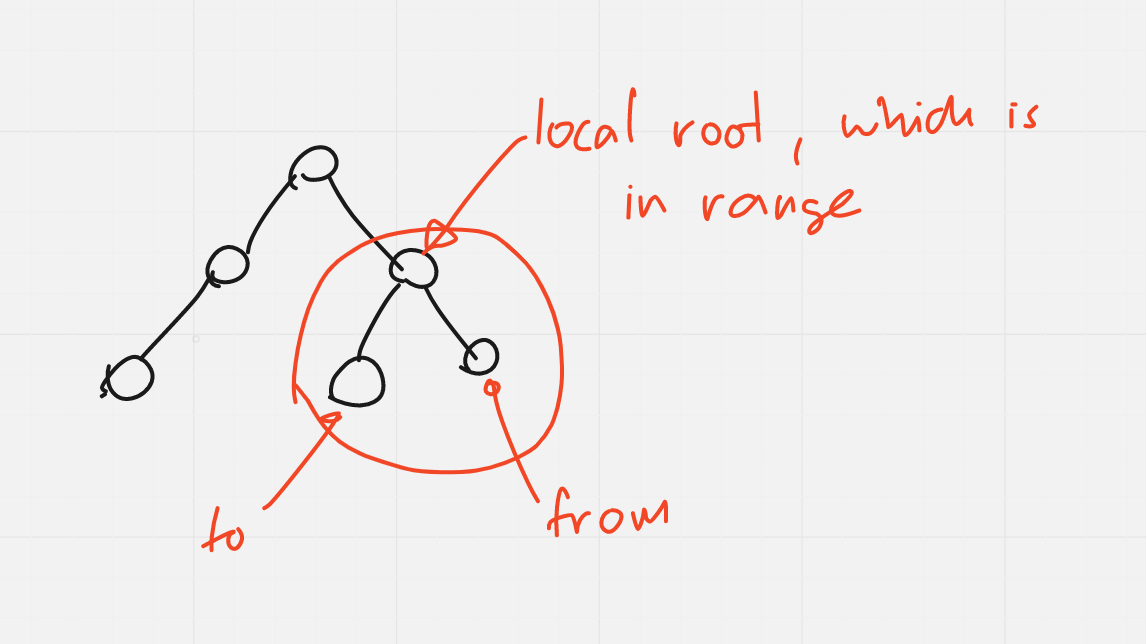 local root, which is
in range
to
from